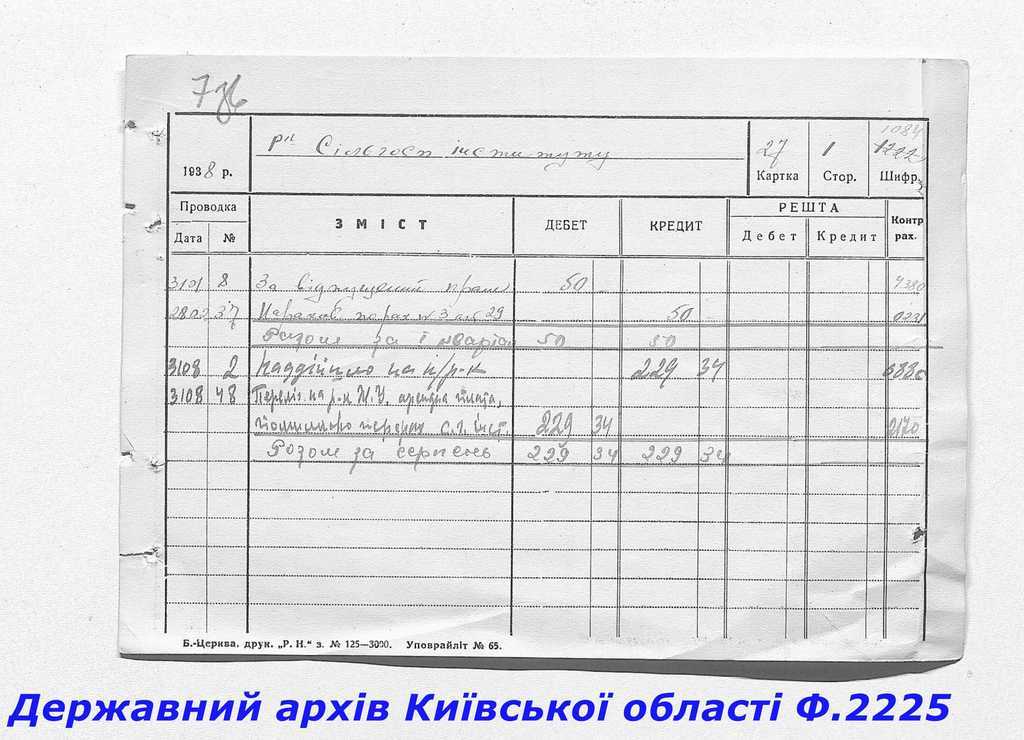 1084
1938 р.
Р/к Сільгосп інституту
27 1 1222
Картка Стор. Шифр.
Проводка
Дата №
ЗМІСТ
ДЕБЕТ
КРЕДИТ
РЕШТА
Дебет Кредит
Контр рах.
3101 8 За відпущений 50 4380
2802 37 по рах № 3 29 50
Разом за І квартал 50 50
3108 2 Надійшло на п/р-к 229 34
3108 48 на р-к арендна плата,
помилково с.г. інст. 229 34 2170
Розом за серпень 229 34 229 34
Б.-Церква, друк. „Р. Н.“ з. № 125—3000. Уповрайліт № 65.
Державний архів Київської області Ф.2225